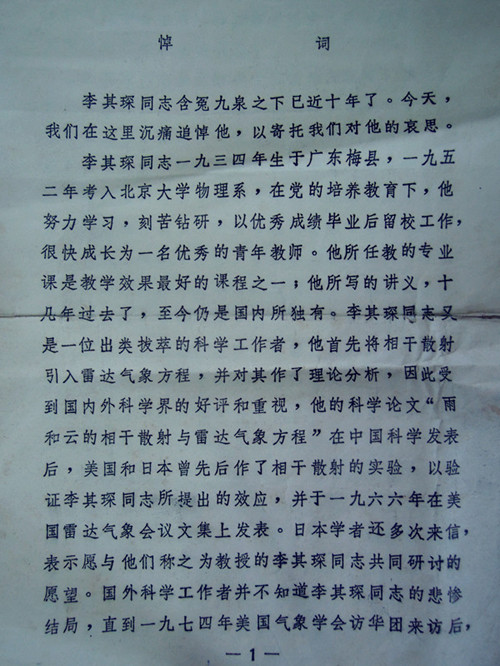 悼 词
李其琛同志含冤九泉之下已近十年了。今天，
我们在这里沉痛追悼他，以寄托我们对他的哀思。
李其琛同志一九三四年生于广东梅县，一九五
二年考入北京大学物理系，在党的培养教育下，他
努力学习，刻苦钻研，以优秀成绩毕业后留校工作，
很快成长为一名优秀的青年教师。他所任教的专业
课是教学效果最好的课程之一；他所写的讲义，十
几年过去了，至今仍是国内所独有。李其琛同志又
是一位出类拔萃的科学工作者，他首先将相干散射
引入雷达气象方程，并对其作了理论分析，因此受
到国内外科学界的好评和重视，他的科学论文“雨
和云的相干散射与雷达气象方程”在中国科学发表
后，美国和日本曾先后作了相干散射的实验，以验
证李其琛同志所提出的效应，并于一九六六年在美
国雷达气象会议文集上发表。日本学者还多次来信，
表示愿与他们称之为教授的李其琛同志共同研讨的
愿望。国外科学工作者并不知道李其琛同志的悲惨
结局，直到一九七四年美国气象学会访华团来访后，
—1—